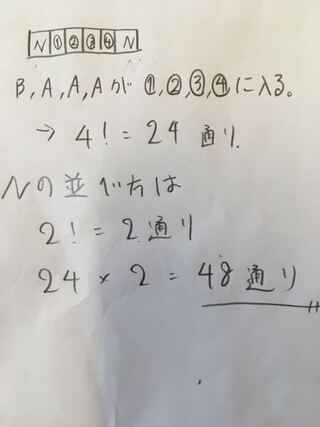 N ① ② ③ ④ N
B, A, A, A が ①, ②, ③, ④ に入る。
→ 4! = 24 通り.
Nの並べ方は
2! = 2 通り
24 × 2 = 48 通り